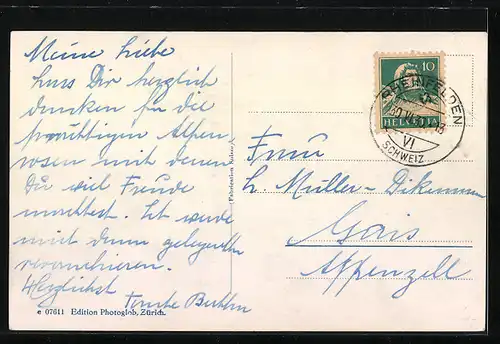 Meine Liebe
Dir herzlich
danken für die
prachtigen Alpen
rosen mit denen
Du viel Freude
machtest. Ich werde
mit dann gelegentlich
revanchieren.
Herzlichst
e 07611 Edition Photoglob, Zürich.
10
HELVETIA
RHEINFELDEN
VI
SCHWEIZ
Frau
L. Müller-
Gais
Appenzell